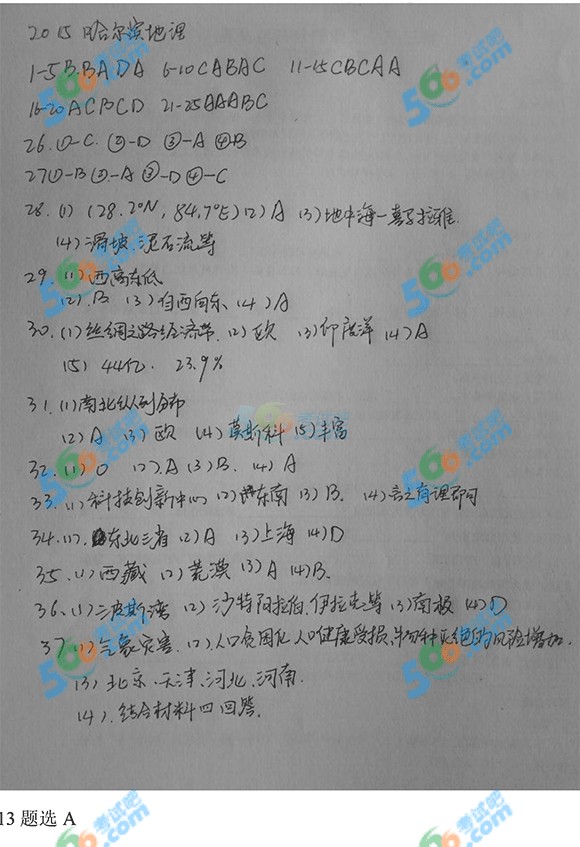 2015 哈尔滨地理
1-5 BBADA 6-10 CABAC 11-15 CBCAA
16-20 ACBCD 21-25 AAABC
26. ①-C. ②-D ③-A ④B
27 ①-B ②-A ③-D ④-C
28. (1) (28.2°N, 84.7°E) (2) A (3) 地中海-喜马拉雅.
(4) 滑坡. 泥石流等
29. (1) 西高东低
(2). B (3) 自西向东 (4) A
30. (1) 丝绸之路经济带. (2) 欧 (3) 印度洋 (4) A
(5) 44亿. 23.9%
31. (1) 南北纵列分布
(2) A (3) 欧 (4) 莫斯科 (5) 丰富
32. (1) 0 (2). A (3) B. (4) A
33. (1) 科技创新中心 (2) 东南 (3) B. (4) 言之有理即可
34. (1). 东北三省 (2) A (3) 上海 (4) D
35. (1) 西藏 (2) 荒漠 (3) A (4) B.
36. (1) 波斯湾 (2) 沙特阿拉伯. 伊拉克等 (3) 南极 (4) D
37 (1) 气象灾害. (2) 人口贫困化 人口健康受损, 物种灭绝的风险增加.
(3) 北京. 天津. 河北. 河南.
(4). 结合材料四回答.
13 题选 A
566考试吧
.com